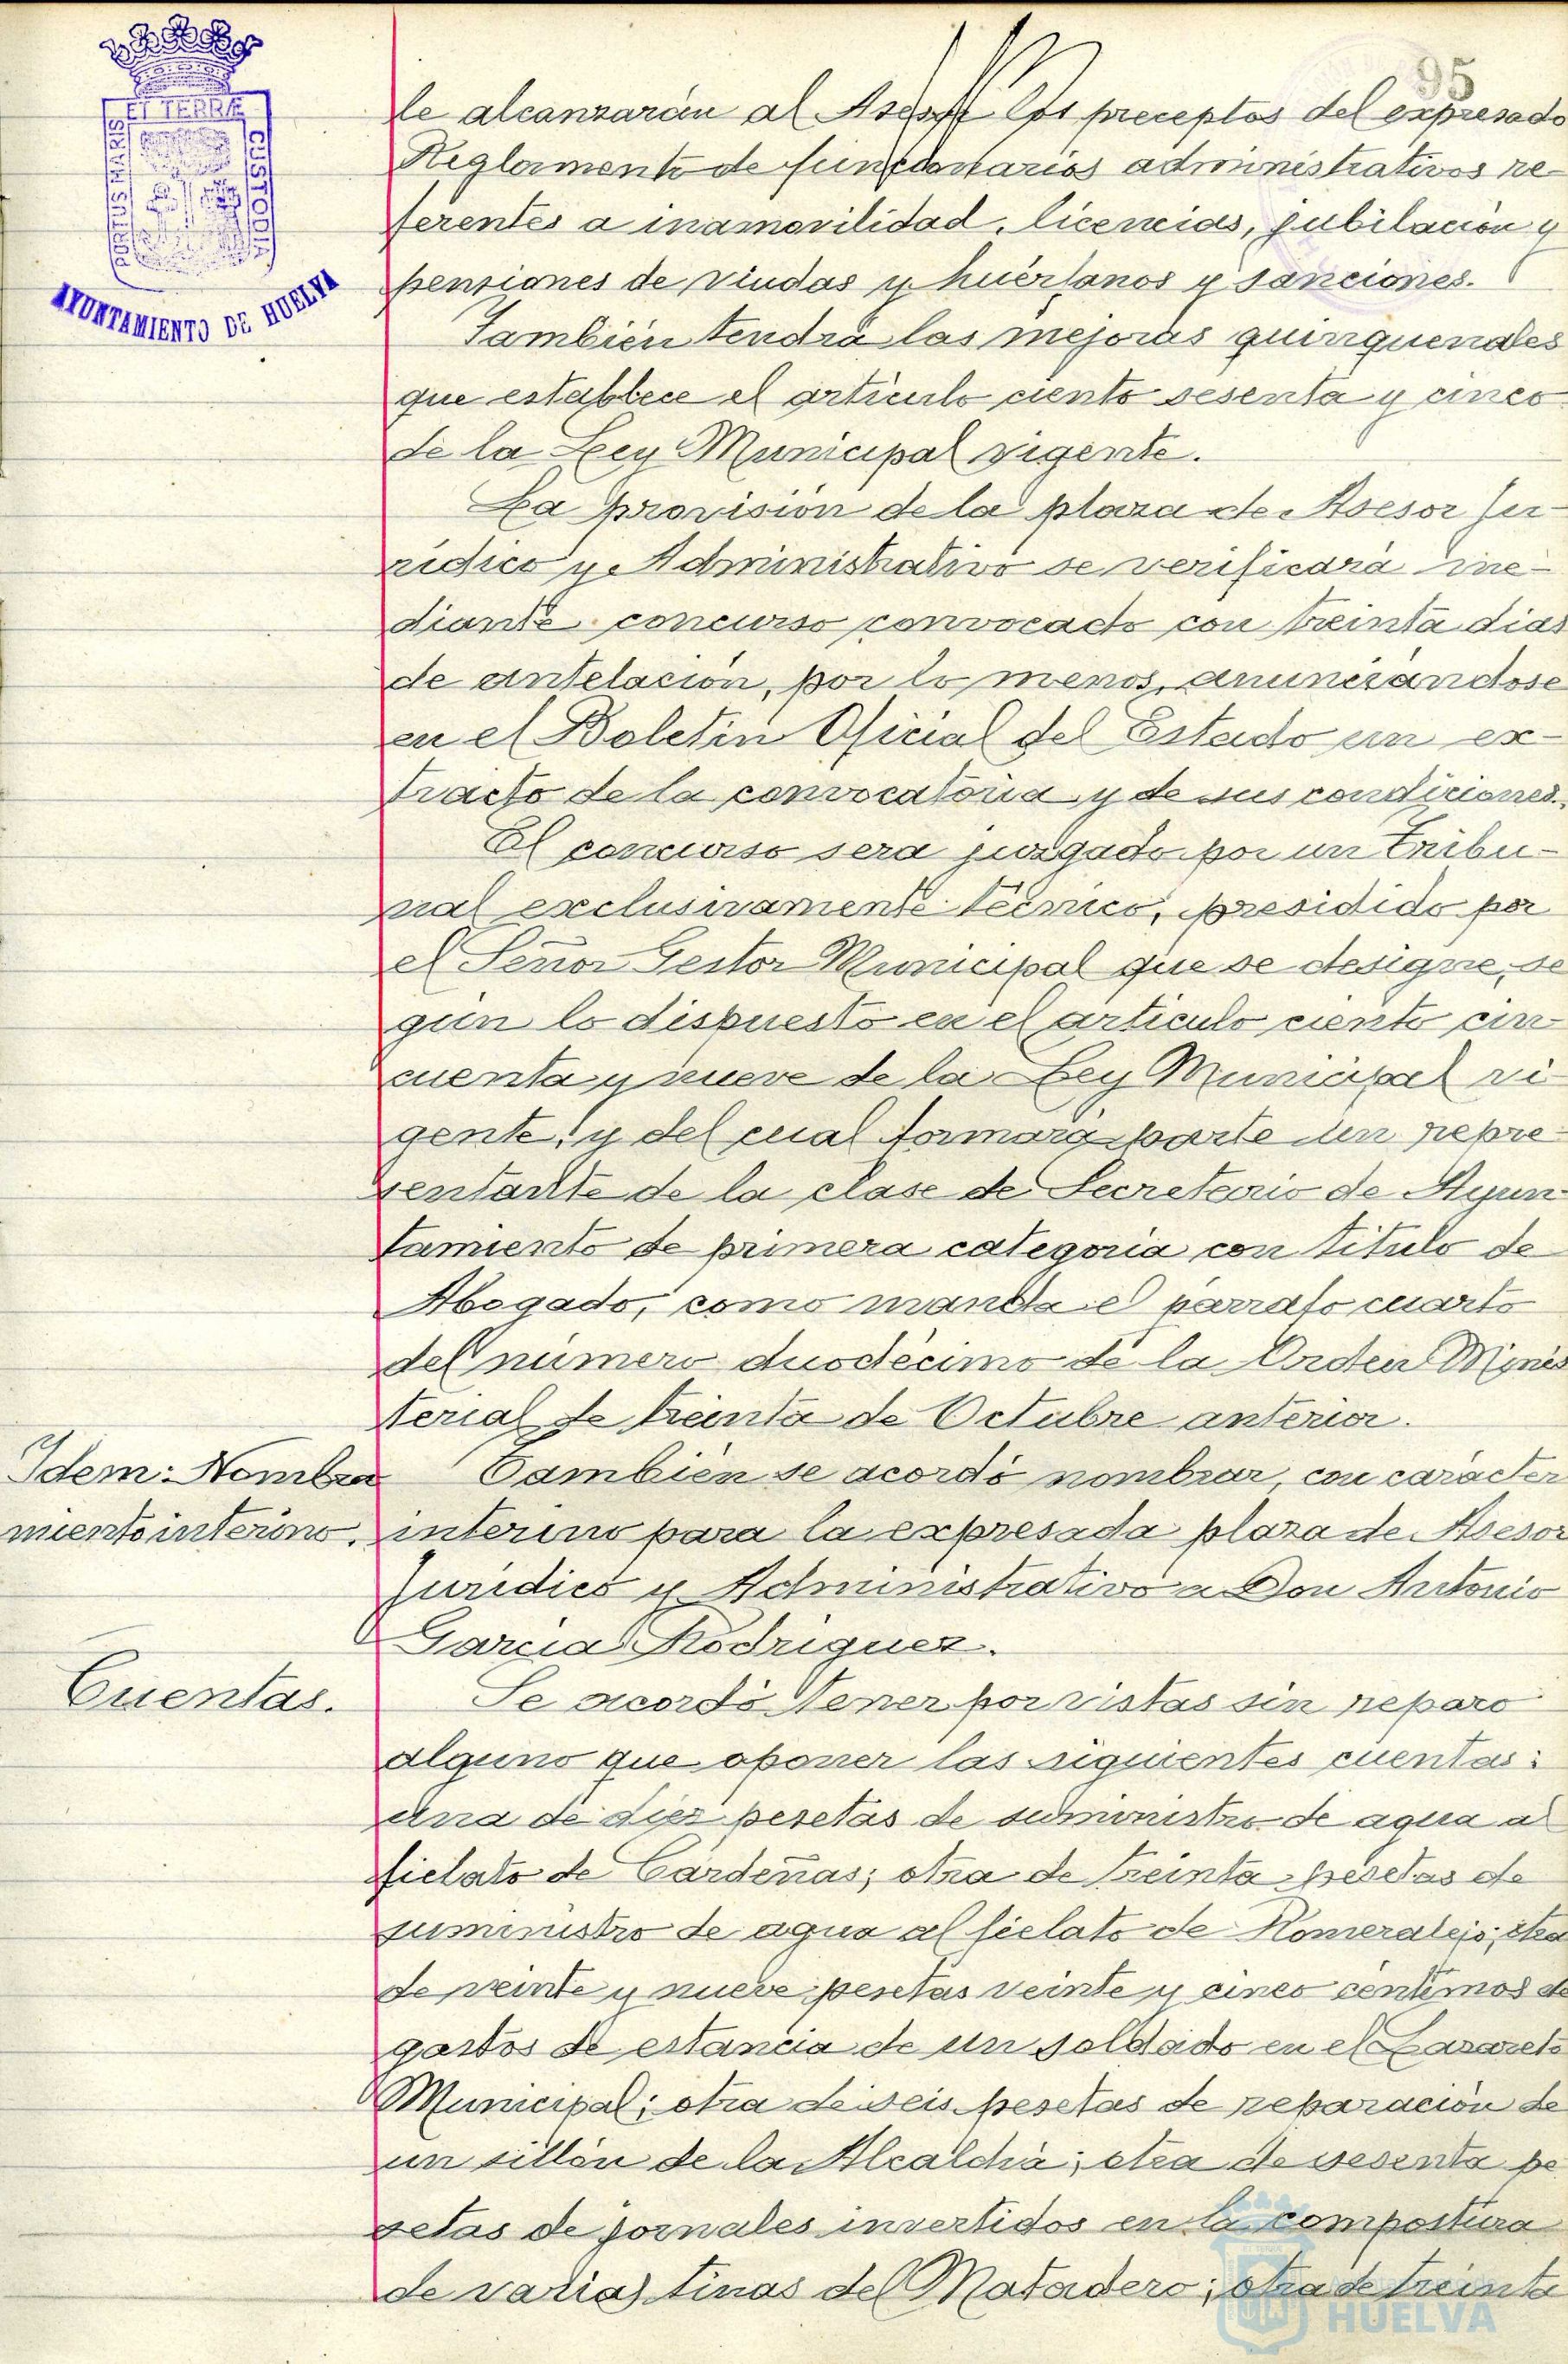 95
ET TERRÆ
CUSTODIA
AYUNTAMIENTO DE HUELVA
le alcanzarán al Asesor los preceptos del expresado
Reglamento de funcionarios administrativos re-
ferentes a inamovilidad, licencias, jubilación y
pensiones de viudas y huérfanos y sanciones.
También tendrá las mejoras quinquenales
que establece el articulo ciento sesenta y cinco
de la Ley Municipal vigente.
La provisión de la plaza de Asesor Ju-
ridico y Administrativo se verificará me-
diante concurso convocado con treinta dias
de antelación, por lo menos, anunciandose
en el Boletin Oficial del Estado un ex-
tracto de la convocatoria y de sus condiciones.
El concurso será juzgado por un Tribu-
nal exclusivamente técnico, presidido por
el Señor Gestor Municipal que se designe, se
gún lo dispuesto en el articulo ciento cin
cuenta y nueve de la Ley Municipal vi
gente, y del cual formará parte un repre-
sentante de la clase de Secretario de Ayun
tamiento de primera categoria con titulo de
Abogado, como manda el párrafo cuarto
del número duodécimo de la Orden Minis
terial de treinta de Octubre anterior.
Idem: Nombra
miento interino.
También se acordó nombrar, con carácter
interino para la expresada plaza de Asesor
Juridico y Administrativo a Don Antonio
Garcia Rodriguez.
Cuentas.
Se acordó tener por vistas sin reparo
alguno que oponer las siguientes cuentas:
una de diez pesetas de suministro de agua al
fielato de Cardeñas; otra de treinta pesetas de
suministro de agua al fielato de Romeralejo; otra
de veinte y nueve pesetas veinte y cinco centimos de
gastos de estancia de un soldado en el Lazareto
Municipal; otra de seis pesetas de reparación de
un sillón de la Alcaldia; otra de sesenta pe
setas de jornales invertidos en la compostura
de varias tinas del Matadero; otra de treinta
HUELVA